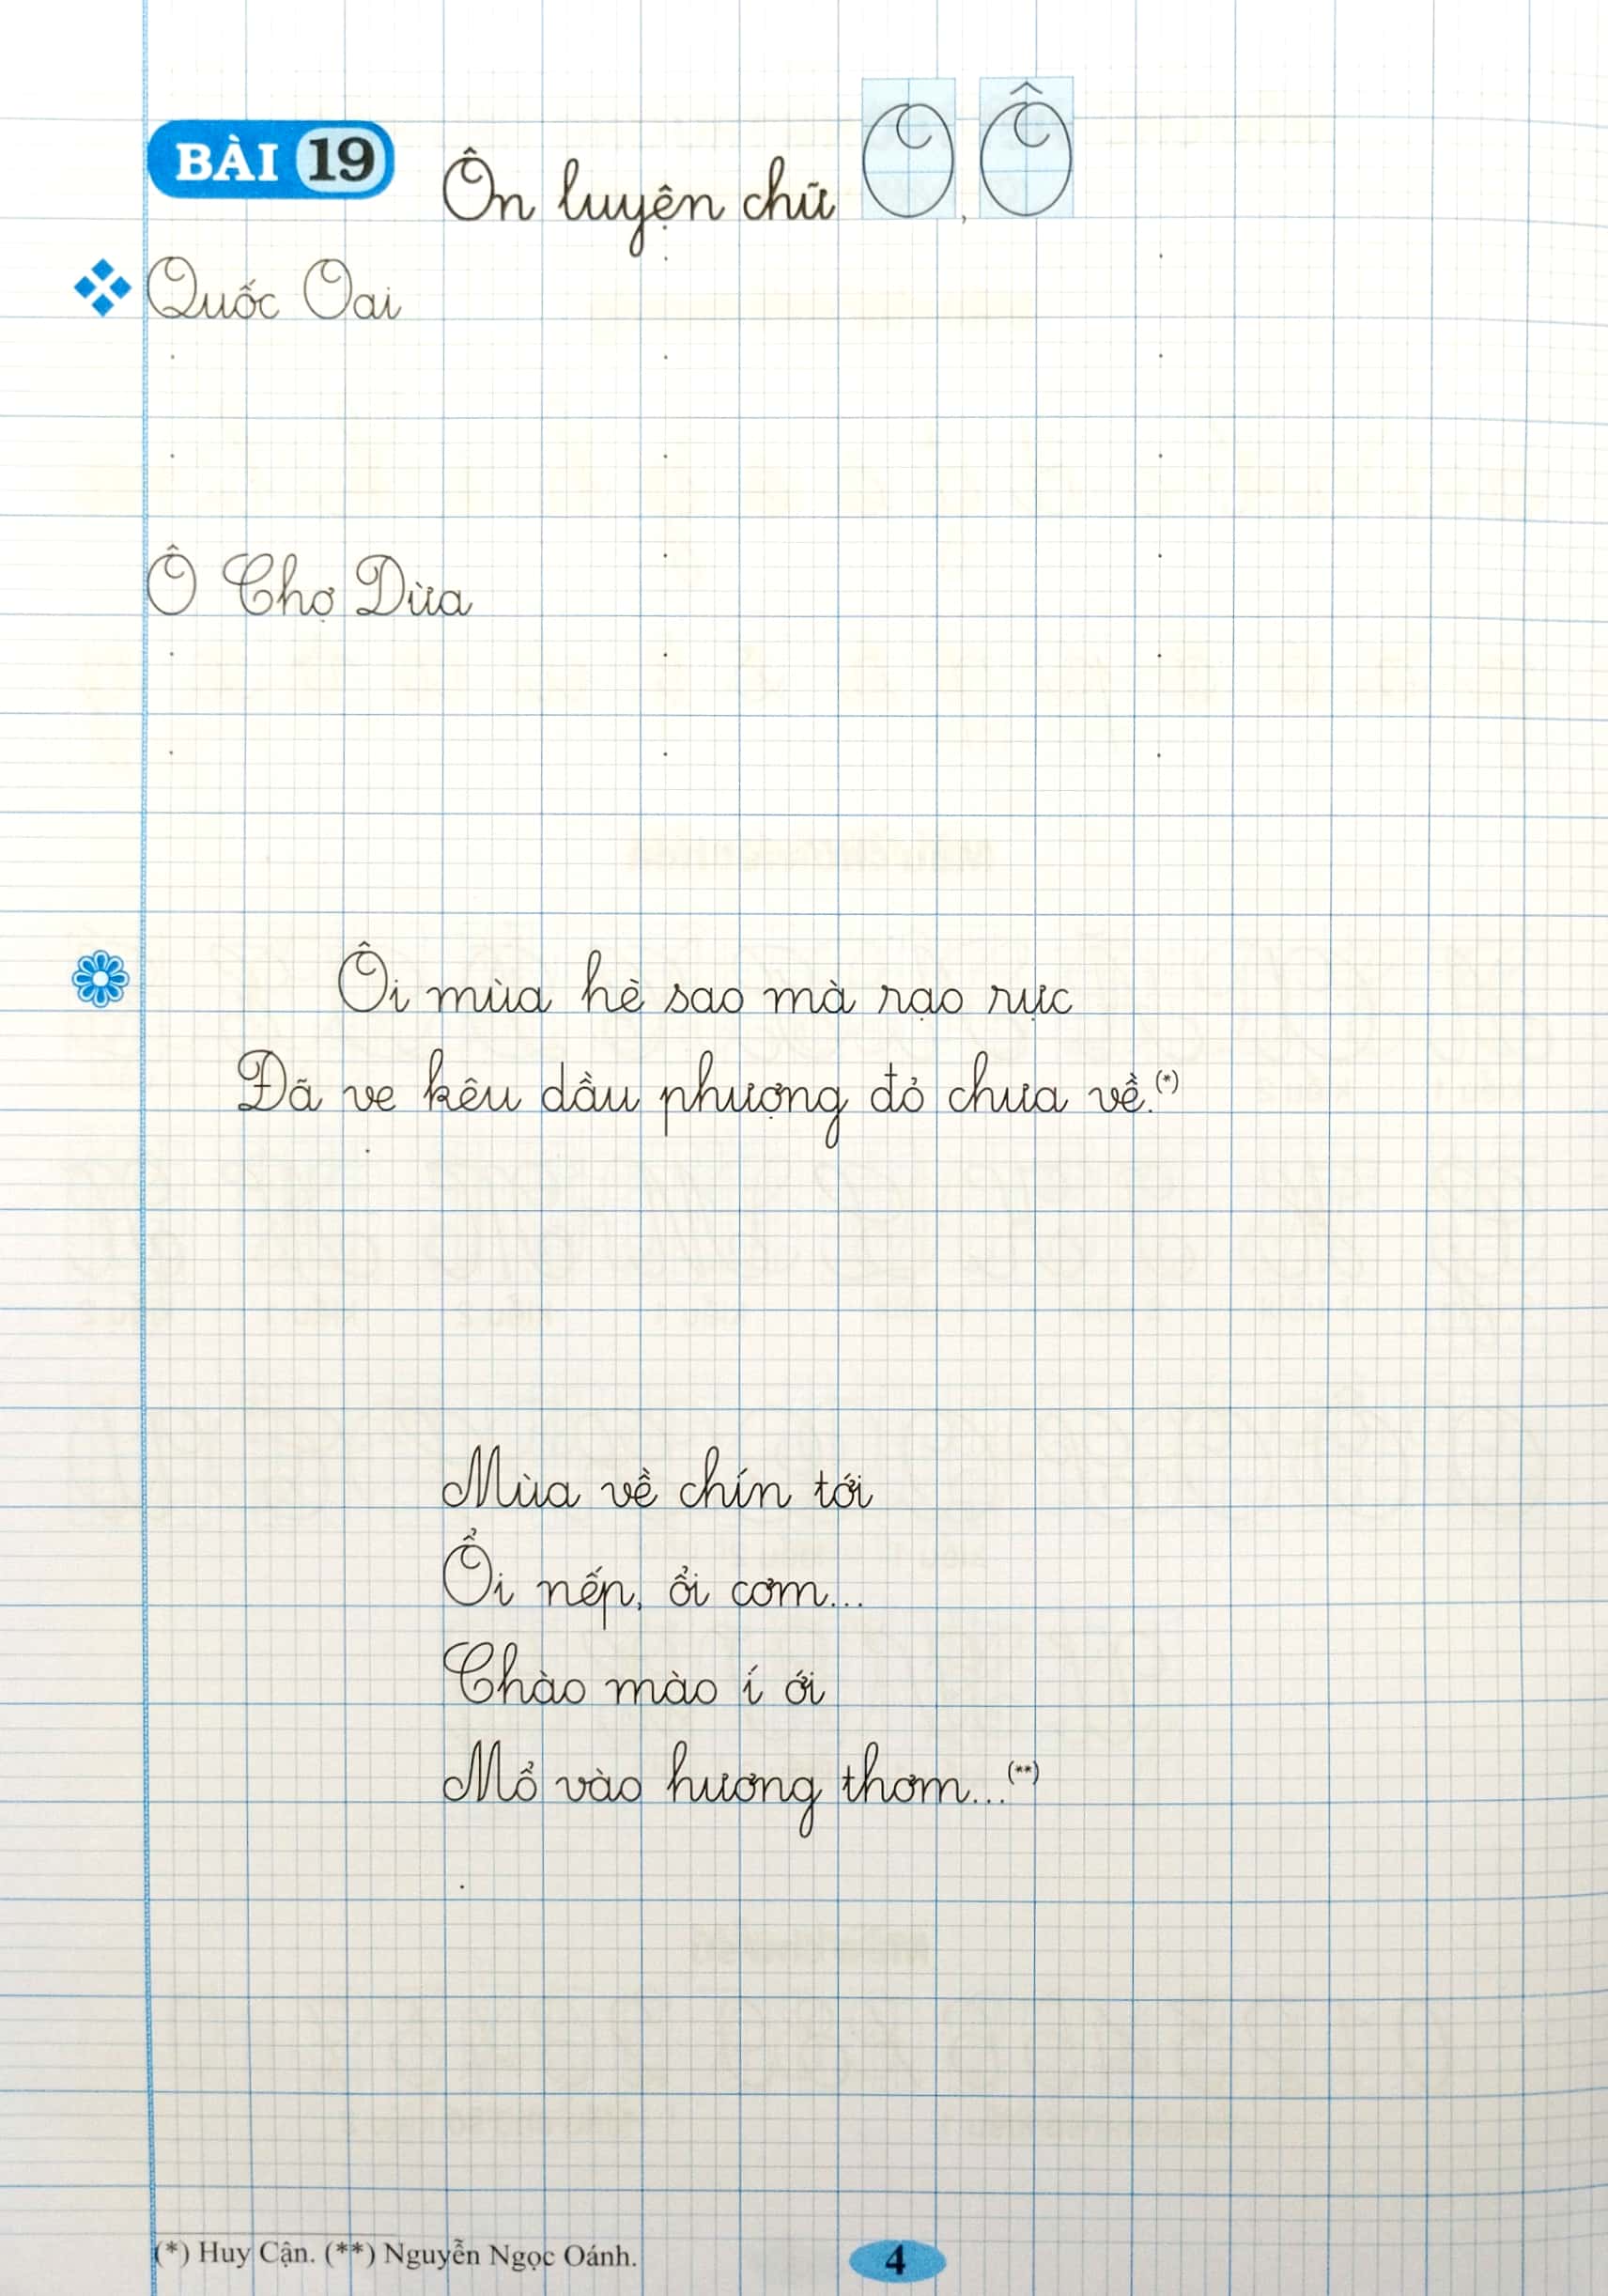 BÀI 19 Ôn luyện chữ O, Ô
Quốc Oai
Ô Chợ Dừa
Ôi mùa hè sao mà rạo rực
Đã ve kêu dầu phượng đỏ chưa về.(*)
Mùa về chín tới
Ổi nếp, ổi cơm...
Chào mào í ới
Mổ vào hương thơm...(**)
(*) Huy Cận. (**) Nguyễn Ngọc Oánh.
4